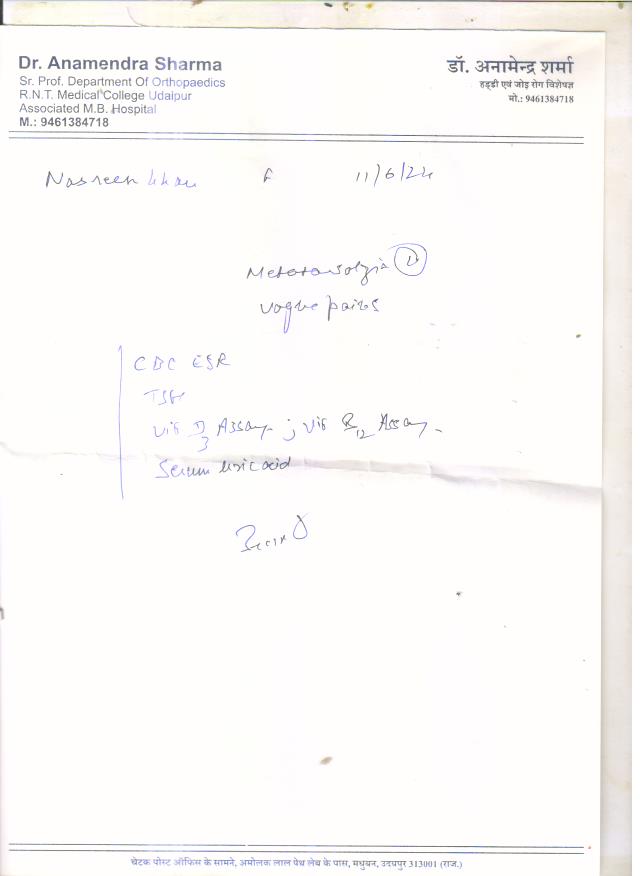 Dr. Anamendra Sharma
Sr. Prof. Department Of Orthopaedics
R.N.T. Medical College Udaipur
Associated M.B. Hospital
M.: 9461384718
डॉ. अनामेन्द्र शर्मा
हड्डी एवं जोड़ रोग विशेषज्ञ
मो.: 9461384718
Nasreen khan F 11/6/24
Metatarsalgia
vague pains
CBC ESR
TSH
Vit D3 Assay ; Vit B12 Assay
Serum Uric acid
चेटक पोस्ट ऑफिस के सामने, अमोलक लाल पेथ लेब के पास, मधुबन, उदयपुर 313001 (राज.)